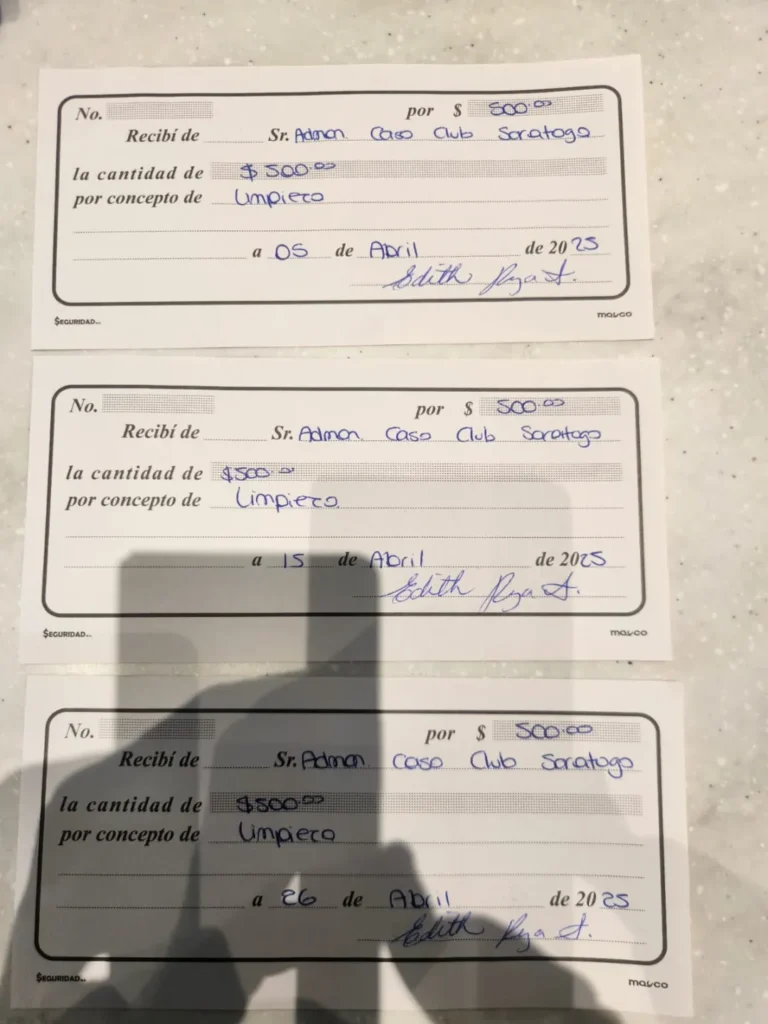 No. por $ 500.00
Recibí de Sr. Admon. Casa Club Saratoga
la cantidad de $ 500.00
por concepto de Limpieza
a 05 de Abril de 2025
Edith
$EGURIDAD...
No. por $ 500.00
Recibí de Sr. Admon. Casa Club Saratoga
la cantidad de $500.00
por concepto de Limpieza
a 15 de Abril de 2025
Edith
$EGURIDAD...
No. por $ 500.00
Recibí de Sr. Admon. Casa Club Saratoga
la cantidad de $500.00
por concepto de Limpieza
a 26 de Abril de 2025
Edith
$EGURIDAD...